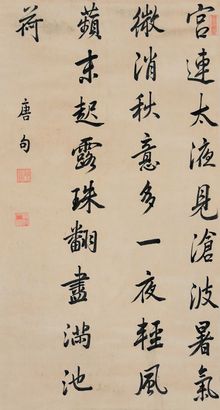 宮連太液見滄波暑氣
微消秋意多一夜輕風
蘋末起露珠翻盡滿池
荷
唐句